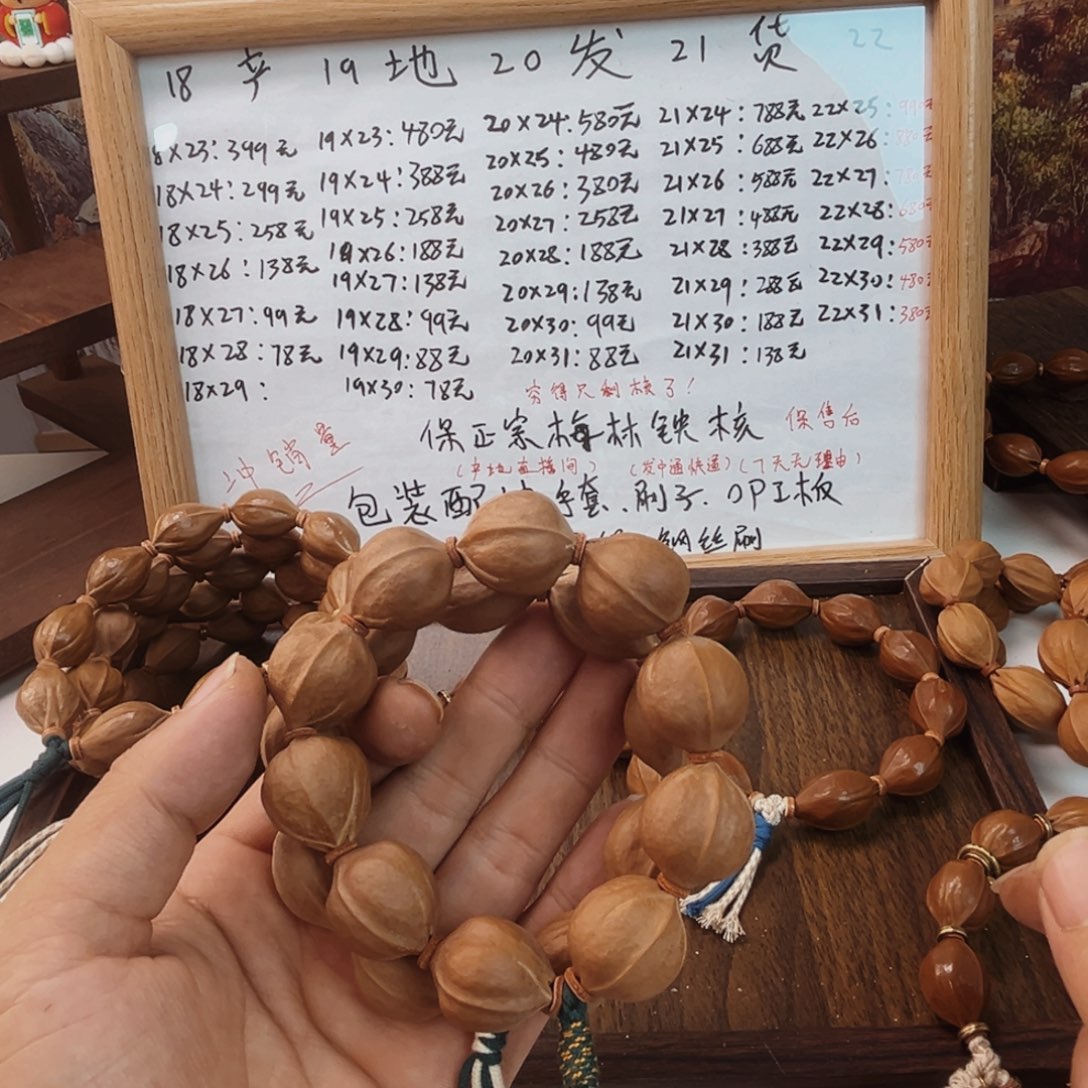 18 产 19 地 20 发 21 货 22
8×23:399元 19×23:480元 20×24:580元 21×24:788元 22×25:
18×24:299元 19×24:388元 20×25:480元 21×25:688元 22×26:
18×25:258元 19×25:258元 20×26:380元 21×26:588元 22×27:
18×26:138元 19×26:188元 20×27:258元 21×27:488元 22×28:
18×27:99元 19×27:138元 20×28:188元 21×28:388元 22×29:580
18×28:78元 19×28:99元 20×29:138元 21×29:288元 22×30:480
18×29: 19×29:88元 20×30:99元 21×30:188元 22×31:380
19×30:78元 20×31:88元 21×31:138元
穷得只剩核了!
保正宗梅林铁核 保售后
冲销量 (产地直播间) (发中通快递) (7天无理由)
包装配 手套.刷子.OPI板
钢丝刷